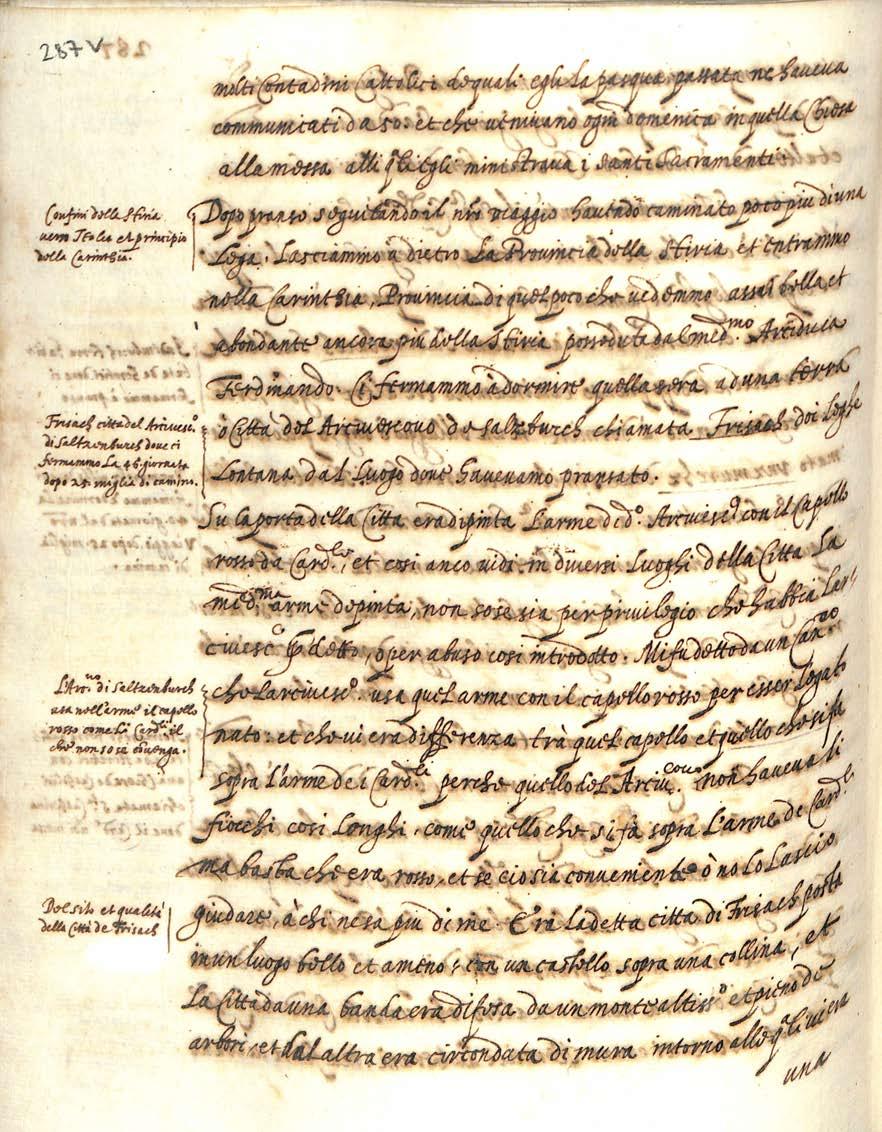 287 v
molti Contadini Cattolici de quali egli la pasqua passata ne haveva
communicati da 50: et che venivano ogni domenica in quella Chiesa
alla messa alli qli egli ministrava i santi Sacramenti.
Confini della Stiria
verso Italia et principio
della Carinthia.
Dopo pranso seguitando il nro viaggio havendo caminato poco piu di una
lega. Lasciammo à dietro la Provincia della Stiria et entrammo
nella Carinthia, Provincia di quel poco che vedemmo assai bella et
abondante ancora piu della Stiria posseduta dal medmo. Arciduca
Ferdinando. Ci fermammo à dormire quella sera ad una terra
ò Città del Arcivescovo de Salzburch chiamata Frisach doi leghe
lontana dal luogo dove havevamo pransato.
Frisach città del Arcivesco.
di Saltzenburch dove ci
fermammo la 46. giornata
dopo 25. miglia di camino.
Su la porta della Città era dipinta l'arme di do. Arcivesco con il Capello
rosso da Cardle, et cosi anco vidi in diversi luoghi della Città la
medma. arme depinta, non so se sia per privilegio che habbia l'Ar-
civesco detto, ò per abuso cosi introdotto. Mi fu detto da un Canco
che l'arcivesco. usa quel arme con il capello rosso per esser legato
nato: et che vi era differenza trà quel capello et quello che si fa
sopra l'arme de i Cardli. perche quello del Arcivcovo. non haveva li
fiocchi cosi longhi, come quello che si fà sopra l'arme de Cardli
ma basta che era rosso, et se cio sia conveniente ò no lo lascio
giudare, à chi ne sa piu di me. Era la detta città di Frisach posta
in un luogo bello et ameno, con un castello sopra una collina, et
la Città da una banda era difesa da un monte altisso et pieno de
arbori, et dal altra era circondata di mura intorno alle qli vi era
una
L'Arcno. di Saltzenburch
usa nell'arme il capello
rosso come li Cardli. il
che non so se convenga.
Del sito et qualità
della Città de Frisach